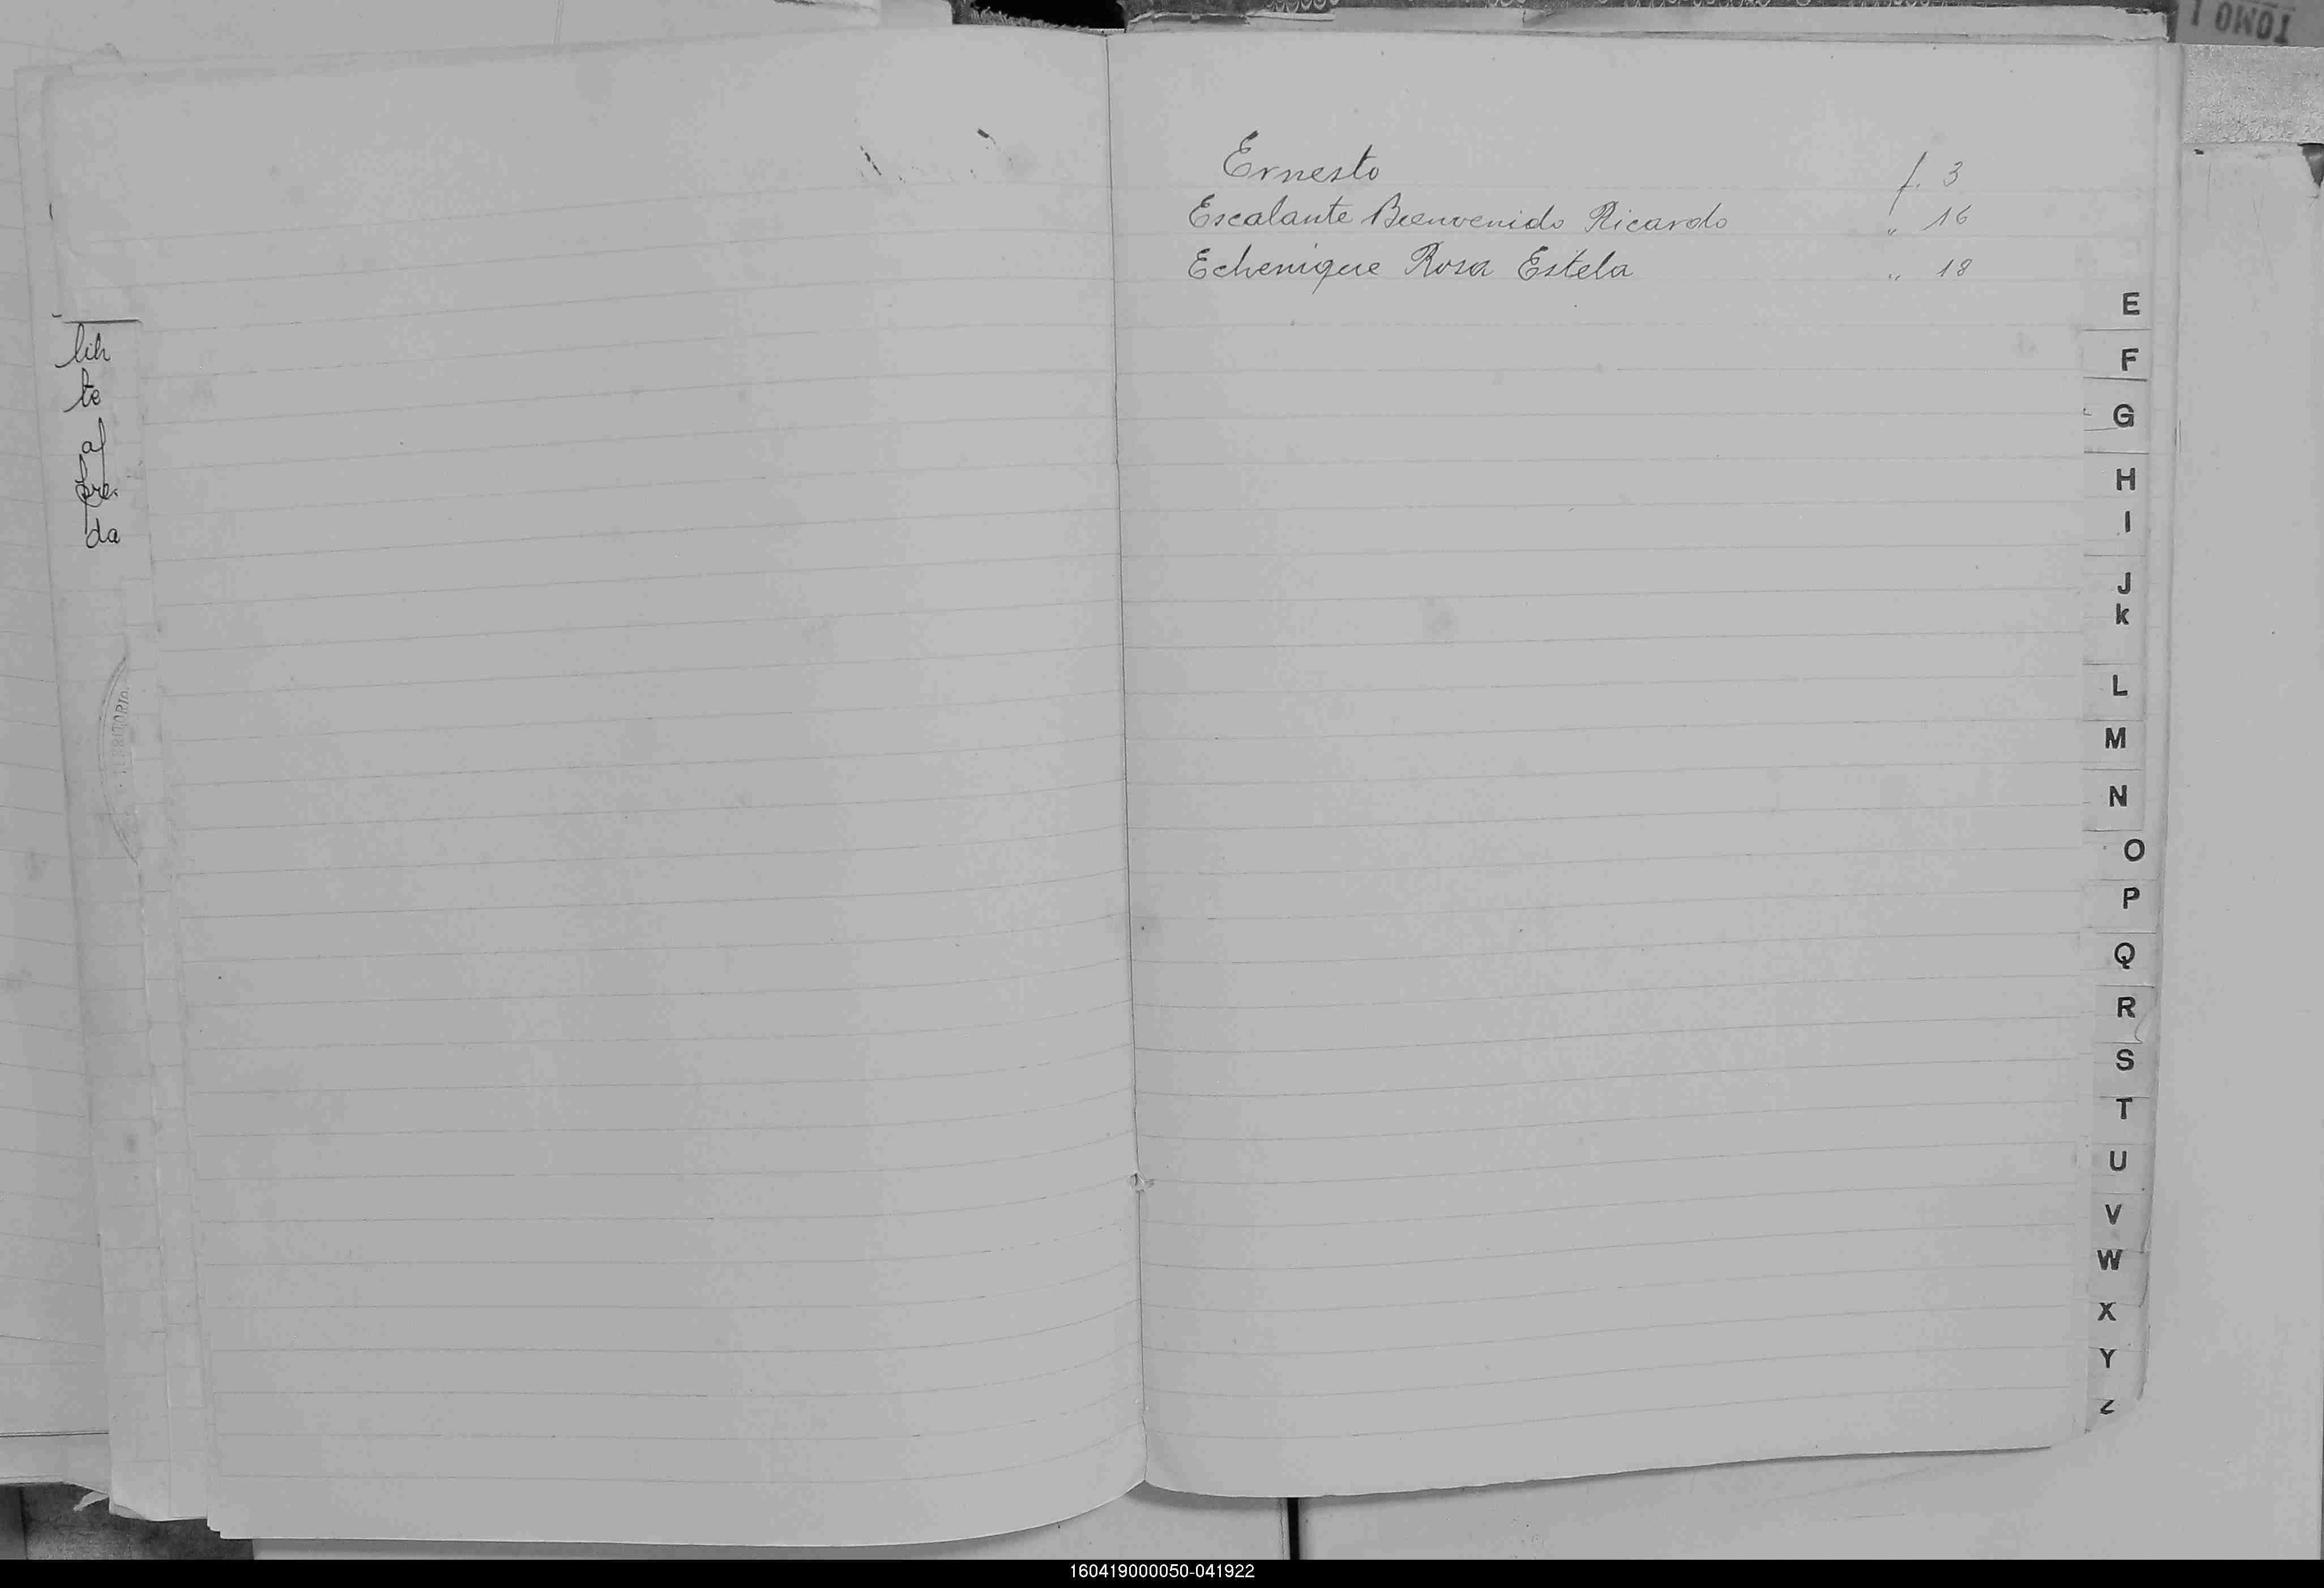 TOMO I
Ernesto f. 3
Escalante Bienvenido Ricardo " 16
Echenique Rosa Estela " 18
lih
te
a
pre.
da
TERRITORIO.
E
F
G
H
I
J
k
L
M
N
O
P
Q
R
S
T
U
V
W
X
Y
Z
160419000050-041922